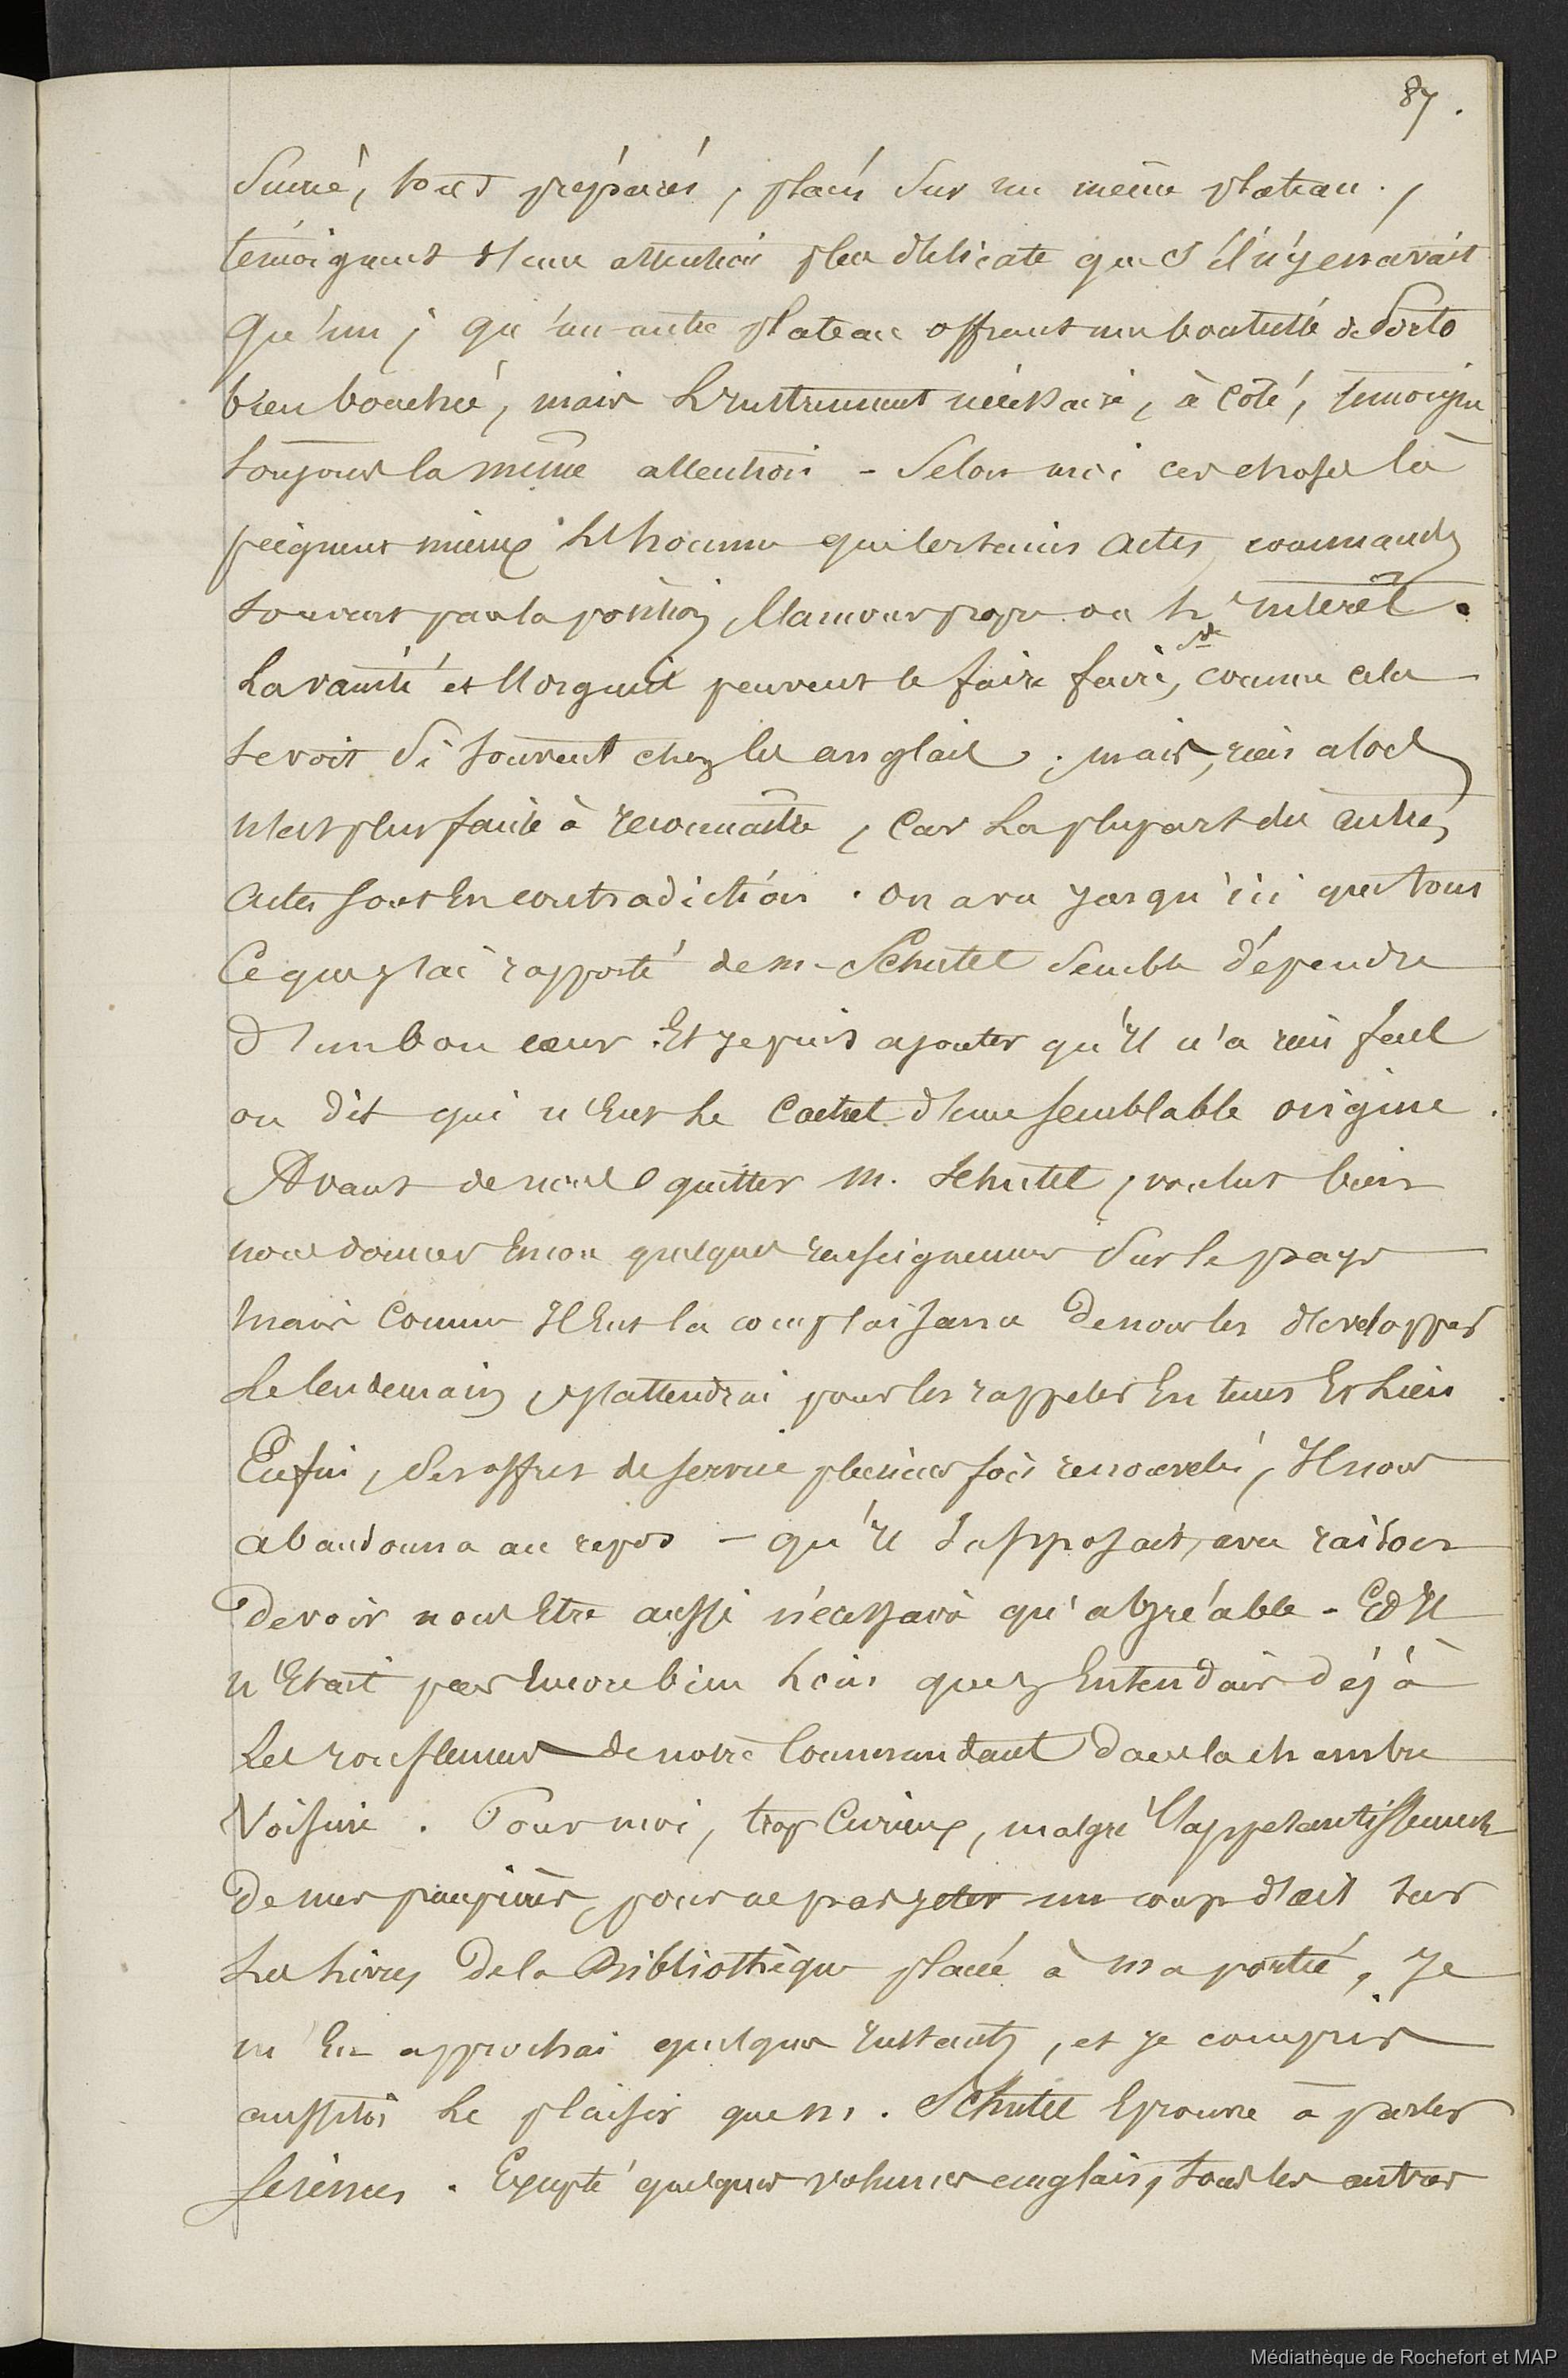 87.
Sucré, tous préparés, placés sur un même plateau,
témoignent d'une attention plus délicate que s'il n'y en avait
qu'un; qu'un autre plateau offrant une bouteille de Porto
bien bouchée, mais l'instrument nécessaire, à côté, témoigne
toujours la même attention - Selon moi ces choses là
peignent mieux l'homme que certains actes commandés
souvent par la position, l'amour propre ou l'intérêt.
La vanité et l'orgueil peuvent le faire faire, comme cela
se voit si souvent chez les anglais; mais, rien alors
n'est plus facile à reconnaître, car la plupart des autres
actes sont en contradiction. On a vu jusqu'ici que tout
ce que j'ai rapporté de M. Schutel semble dépendre
d'un bon cœur. Et je puis ajouter qu'il n'a rien fait
ou dit qui n'eut le cachet d'une semblable origine.
Avant de nous quitter M. Schutel, voulut bien
nous donner encore quelques renseignemens sur le pays
mais comme il eut la complaisance de nous les développer
le lendemain, j'attendrai pour les rappeler en tems et lieu.
Enfin, ses offres de service plusieurs fois renouvelés, il nous
abandonna au repos - qu'il supposait, avec raison
devoir nous être aussi nécessaire qu'agréable - Et il
n'était pas encore bien loin que j'entendais déjà
les ronflemens de notre Commandant dans la chambre
voisine. Pour moi, trop curieux, malgré l'appesantissement
de mes paupières, pour ne pas jeter un coup d'œil sur
les livres de la Bibliothèque placée à ma portée, je
m'en approchai quelques instants, et je compris
aussitôt le plaisir que M. Schutel éprouve à parler
sciences. Excepté quelques volumes anglais, tous les autres
Médiathèque de Rochefort et MAP